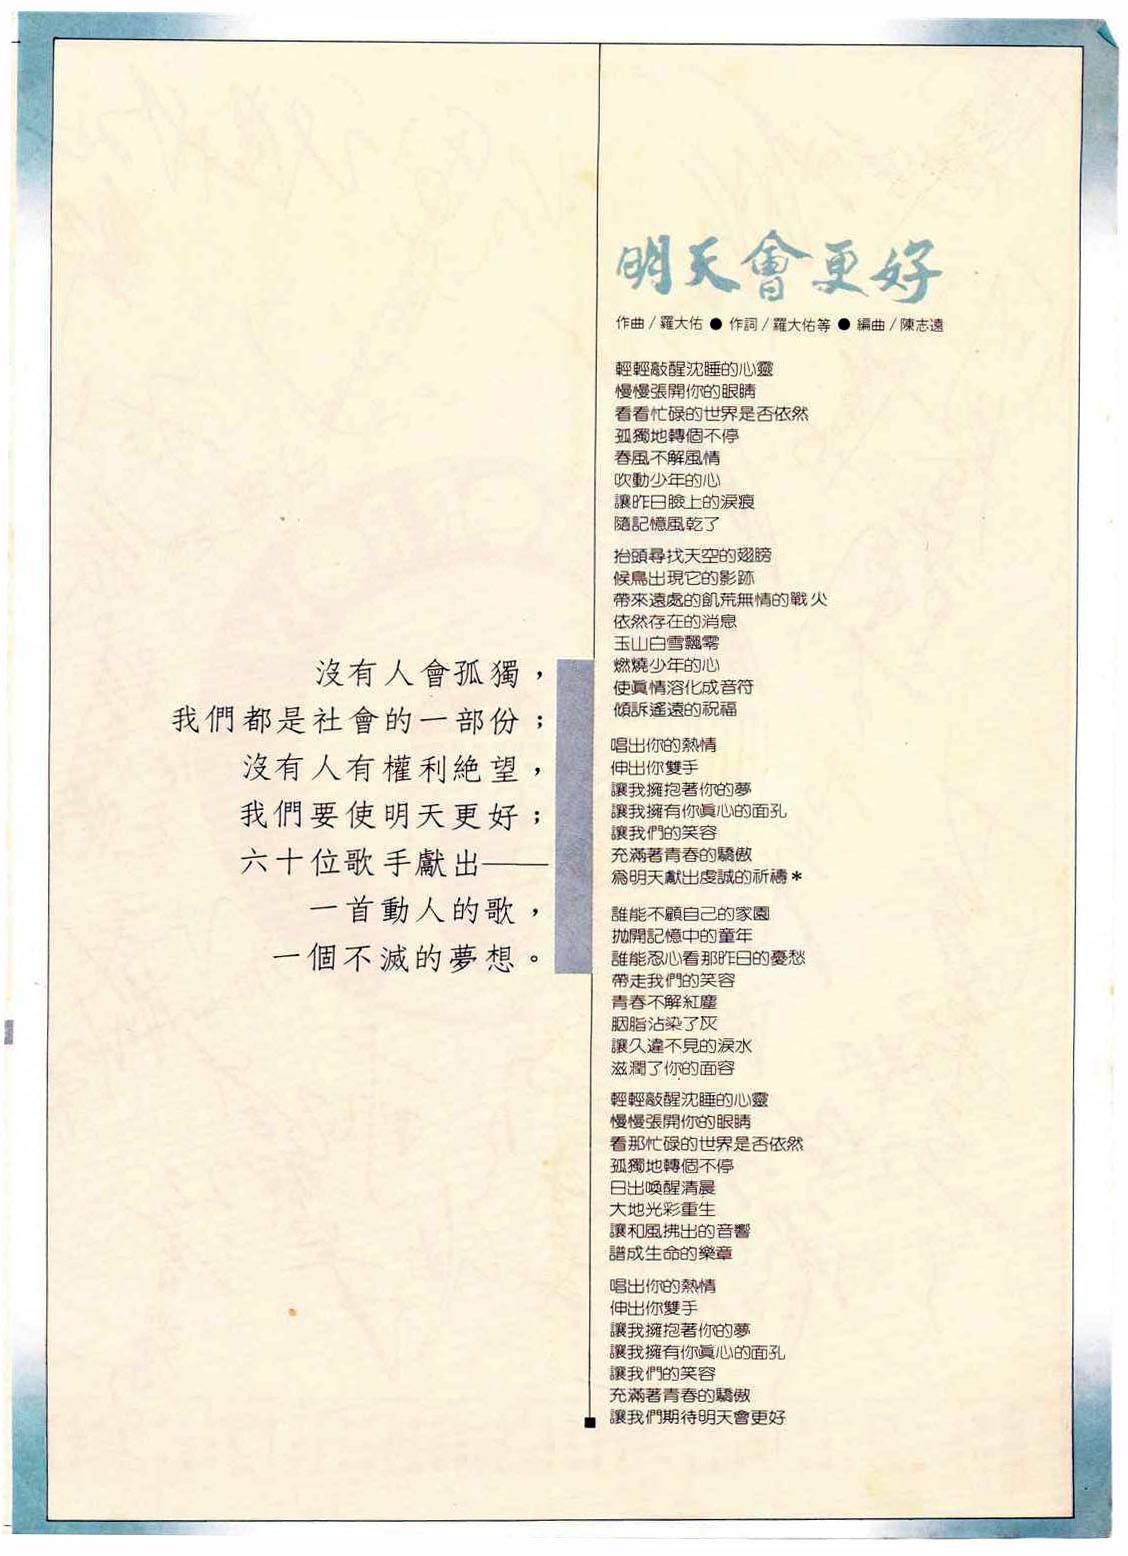 沒有人會孤獨，
我們都是社會的一部份；
沒有人有權利絕望，
我們要使明天更好；
六十位歌手獻出——
一首動人的歌，
一個不滅的夢想。
明天會更好
作曲/羅大佑●作詞/羅大佑等●編曲/陳志遠
輕輕敲醒沈睡的心靈
慢慢張開你的眼睛
看看忙碌的世界是否依然
孤獨地轉個不停
春風不解風情
吹動少年的心
讓昨日臉上的淚痕
隨記憶風乾了
抬頭尋找天空的翅膀
候鳥出現它的影跡
帶來遠處的飢荒無情的戰火
依然存在的消息
玉山白雪飄零
燃燒少年的心
使眞情溶化成音符
傾訴遙遠的祝福
唱出你的熱情
伸出你雙手
讓我擁抱著你的夢
讓我擁有你眞心的面孔
讓我們的笑容
充滿著青春的驕傲
為明天獻出虔誠的祈禱＊
誰能不顧自己的家園
拋開記憶中的童年
誰能忍心看那昨日的憂愁
帶走我們的笑容
青春不解紅塵
胭脂沾染了灰
讓久違不見的淚水
滋潤了你的面容
輕輕敲醒沈睡的心靈
慢慢張開你的眼睛
看那忙碌的世界是否依然
孤獨地轉個不停
日出喚醒清晨
大地光彩重生
讓和風拂出的音響
譜成生命的樂章
唱出你的熱情
伸出你雙手
讓我擁抱著你的夢
讓我擁有你眞心的面孔
讓我們的笑容
充滿著青春的驕傲
讓我們期待明天會更好